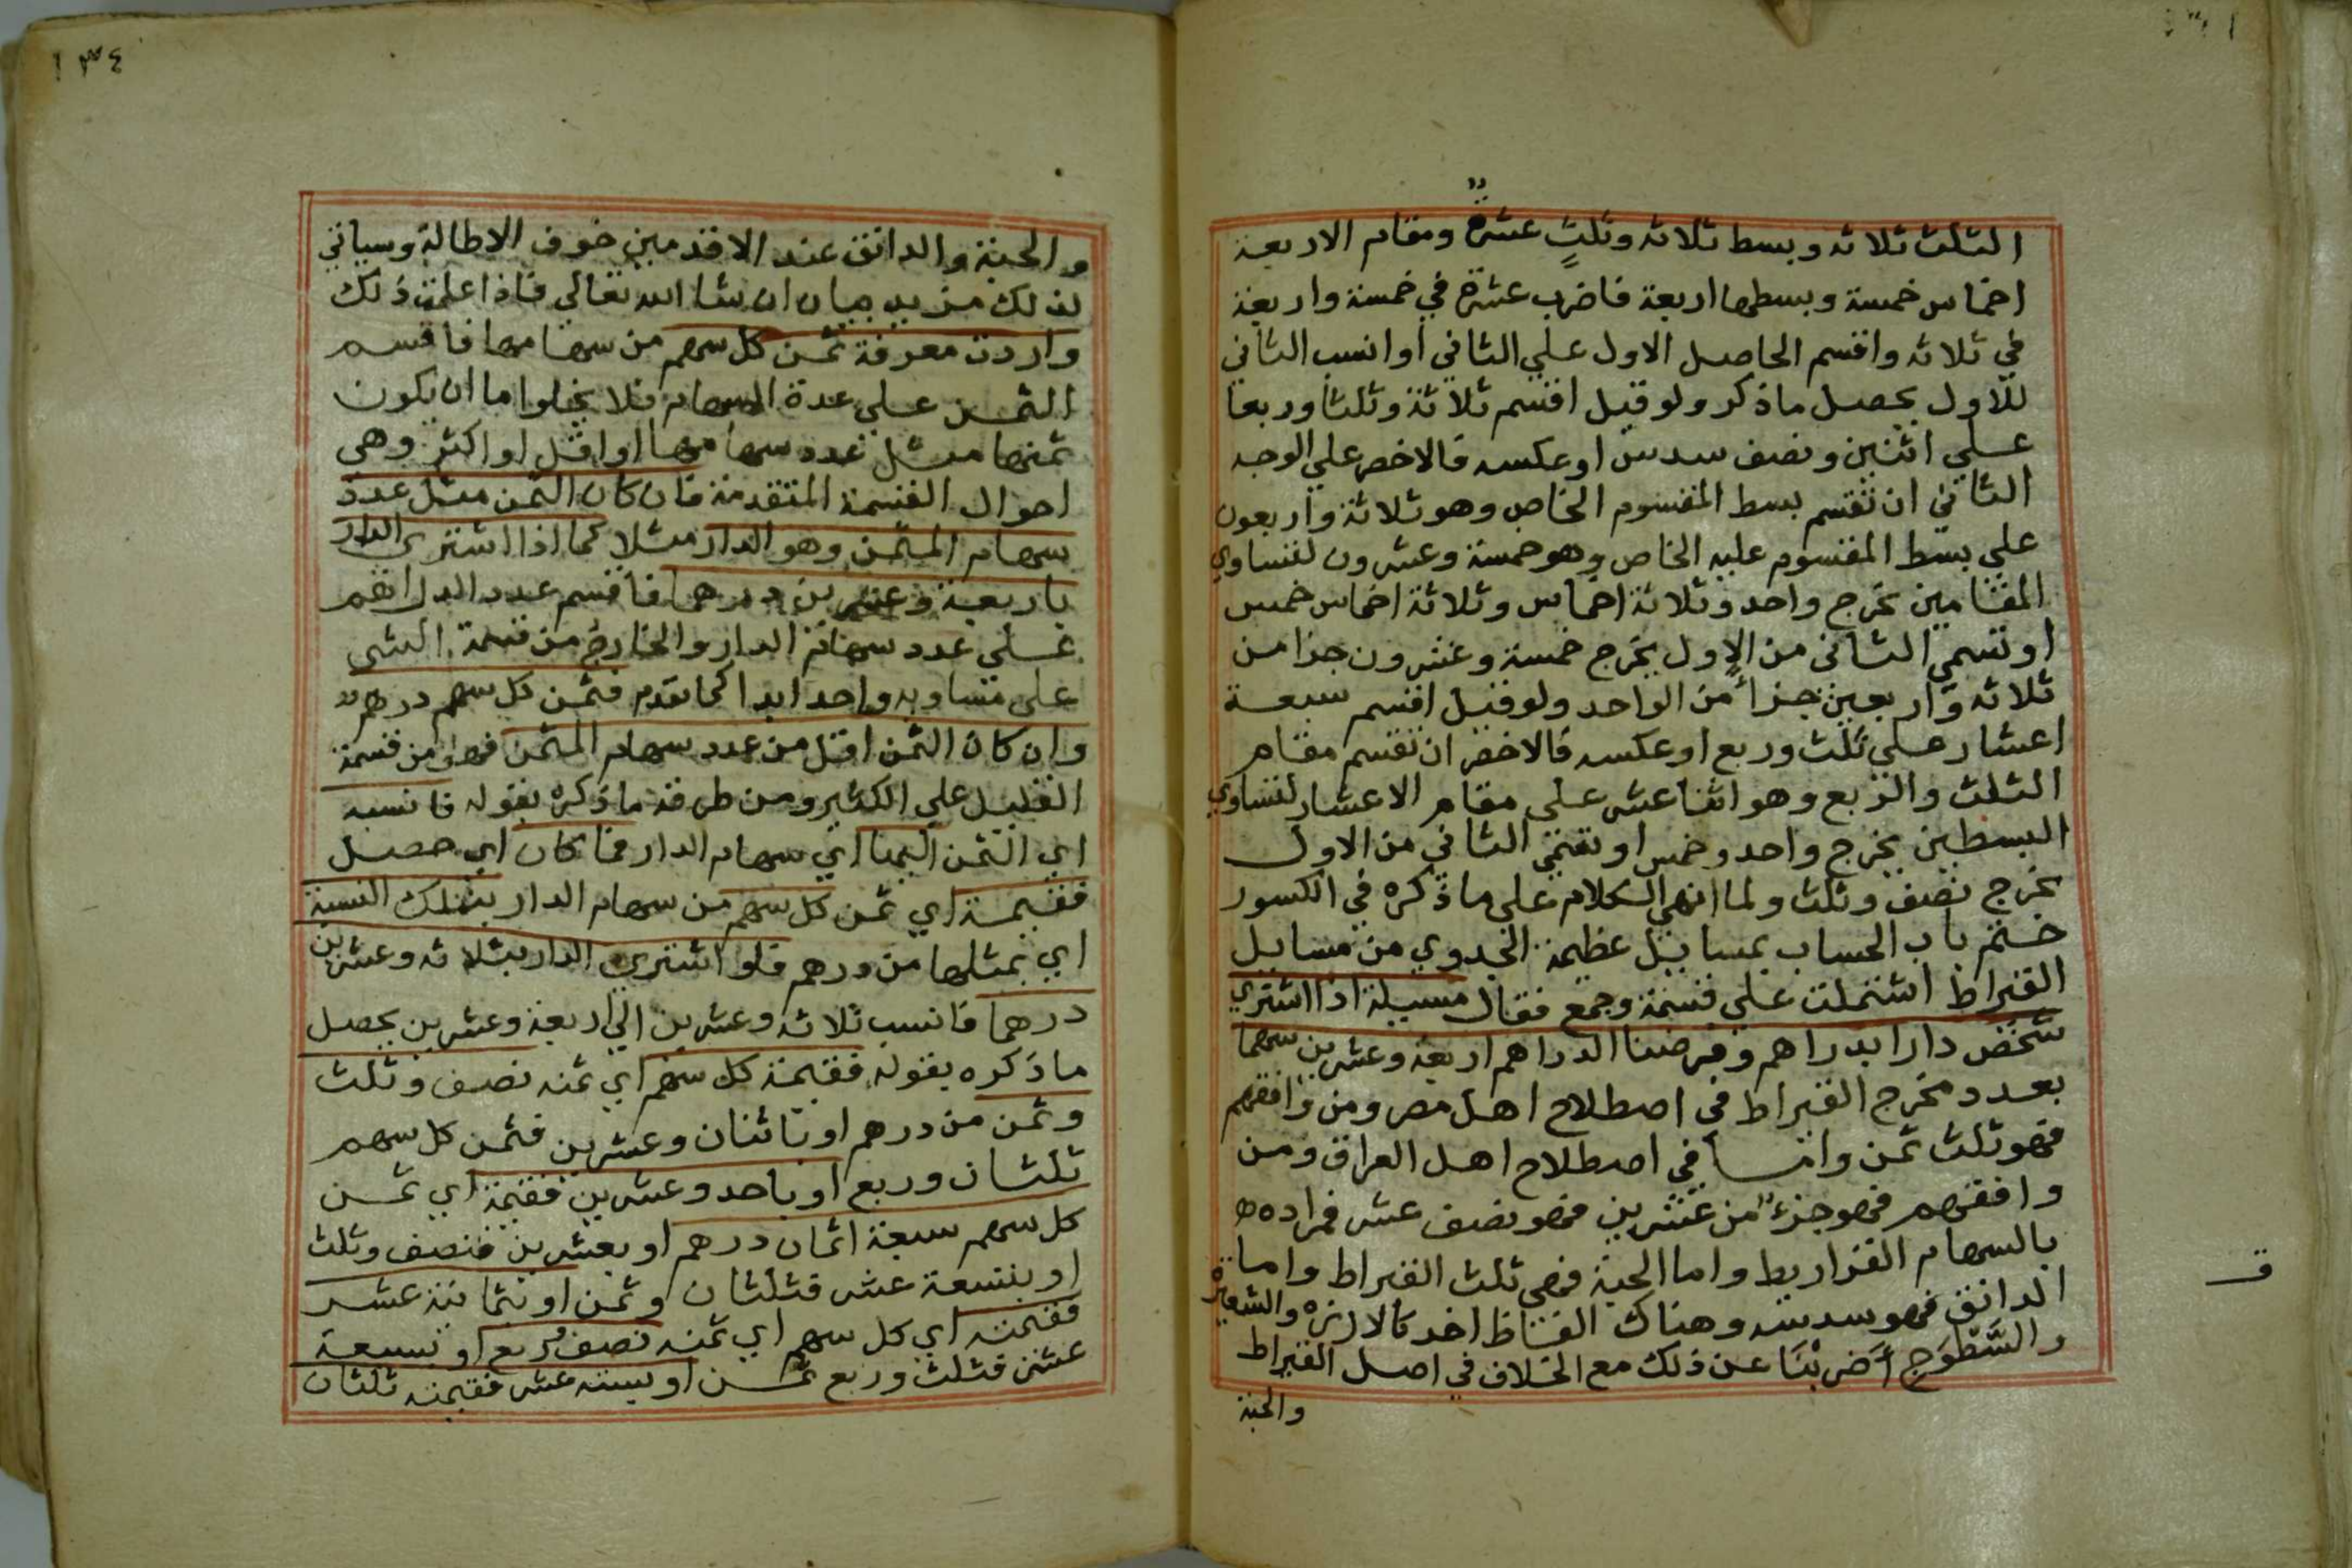 الثلث ثلاثه وبسط ثلاثه وثلثٍ عشرة ومقام الاربعة
اخماس خمسة وبسطها اربعة فاضرب عشرة في خمسة واربعة
في ثلاثه واقسم الحاصل الاول علي الثاني أوانسب الثاني
للأول يحصل ماذكر ولوقيل اقسم ثلاثة وثلثا وربعا
علي اثنين ونصف سدس اوعكسه فالاخصر علي الوجه
الثاني ان تقسم بسط المقسوم الخاص وهو ثلاثة واربعون
علي بسط المقسوم عليه الخاص وهو خمسة وعشرون لتساوي
المقامين يخرج واحد وثلاثة اخماس وثلاثة اخماس خمس
او تسمي الثاني من الاول يخرج خمسة وعشرون جزا من
ثلاثه واربعين جزأ من الواحد ولو قيل اقسم سبعة
اعشار علي ثلث وربع اوعكسه فالاخصر ان تقسم مقام
الثلث والربع وهو اثنا عشر علي مقام الاعشار لتساوي
البسطين يخرج واحد وخمس او تسمي الثاني من الاول
يخرج نصف وثلث ولما انهي الكلام علي ماذكره في الكسور
ختم باب الحساب بمسايل عظيمة الجدوي من مسايل
القيراط اشتملت علي قسمة وجمع فقال مسيلة اذا اشتري
شخص دارا بدراهم وفرضنا الدراهم اربعة وعشرين سهما
بعدد مخرج القيراط في اصطلاح اهل مصر ومن وافقهم
فهو ثلث ثمن واما في اصطلاح اهل العراق ومن
وافقهم فهو جزء من عشرين فهو نصف عشر فمراده
بالسهام القراريط واما الحبة فهي ثلث القيراط واما
الدانق فهو سدسه وهناك الفاظ اخر كالارزه والشعيرة
والسَّطُوَج أَضربْنَا عن ذلك مع الخلاف في اصل القيراط
والحبة
ق
١٣٤
والحبة والدانق عند الاقدمين خوف الاطالة وسياتي
لذلك مزيد بيان ان شا الله تعالي فاذا علمت ذلك
واردت معرفة ثمن كل سهم من سهامها فاقسم
الثمن علي عدة السهام فلا يخلوا اما ان يكون
ثمنها مثل عدد سهامها او اقل او اكثر وهي
احوال القسمة المتقدمة فان كان الثمن مثل عدد
سهام المثمن وهو الدار مثلا كما اذا اشتري الدار
باربعة وعشرين درهما فاقسم عدد الدراهم
علي عدد سهام الدار والخارج من قسمة الشي
علي مساويه واحد ابدا كما تقدم فثمن كل سهم درهم
وان كان الثمن اقل من عدد سهام المثمن فهو من قسمة
القليل علي الكثير ومن طرقه ماذكره بقوله فانسبه
اي الثمن اليها اي سهام الدار فما كان اي حصل
فقيمة اي ثمن كل سهم من سهام الدار بتلك النسبة
اي بمثلها من درهم فلو اشتري الدار بثلاثه وعشرين
درهما فانسب ثلاثه وعشرين الي اربعة وعشرين يحصل
ماذكره بقوله فقيمة كل سهم اي ثمنه نصف وثلث
وثمن من درهم او باثنان وعشرين فثمن كل سهم
ثلثان وربع او باحد وعشرين فقيمة اي ثمن
كل سهم سبعة اثمان درهم او بعشرين فنصف وثلث
او بتسعة عشر فثلثان وثمن او بثمانية عشر
فقيمته اي كل سهم اي ثمنه نصف وربع او بسبعة
عشر فثلث وربع ثمن او بستة عشر فقيمته ثلثان